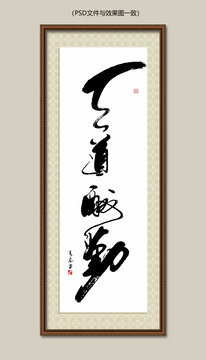 （PSD文件与效果图一致）
天道酬勤